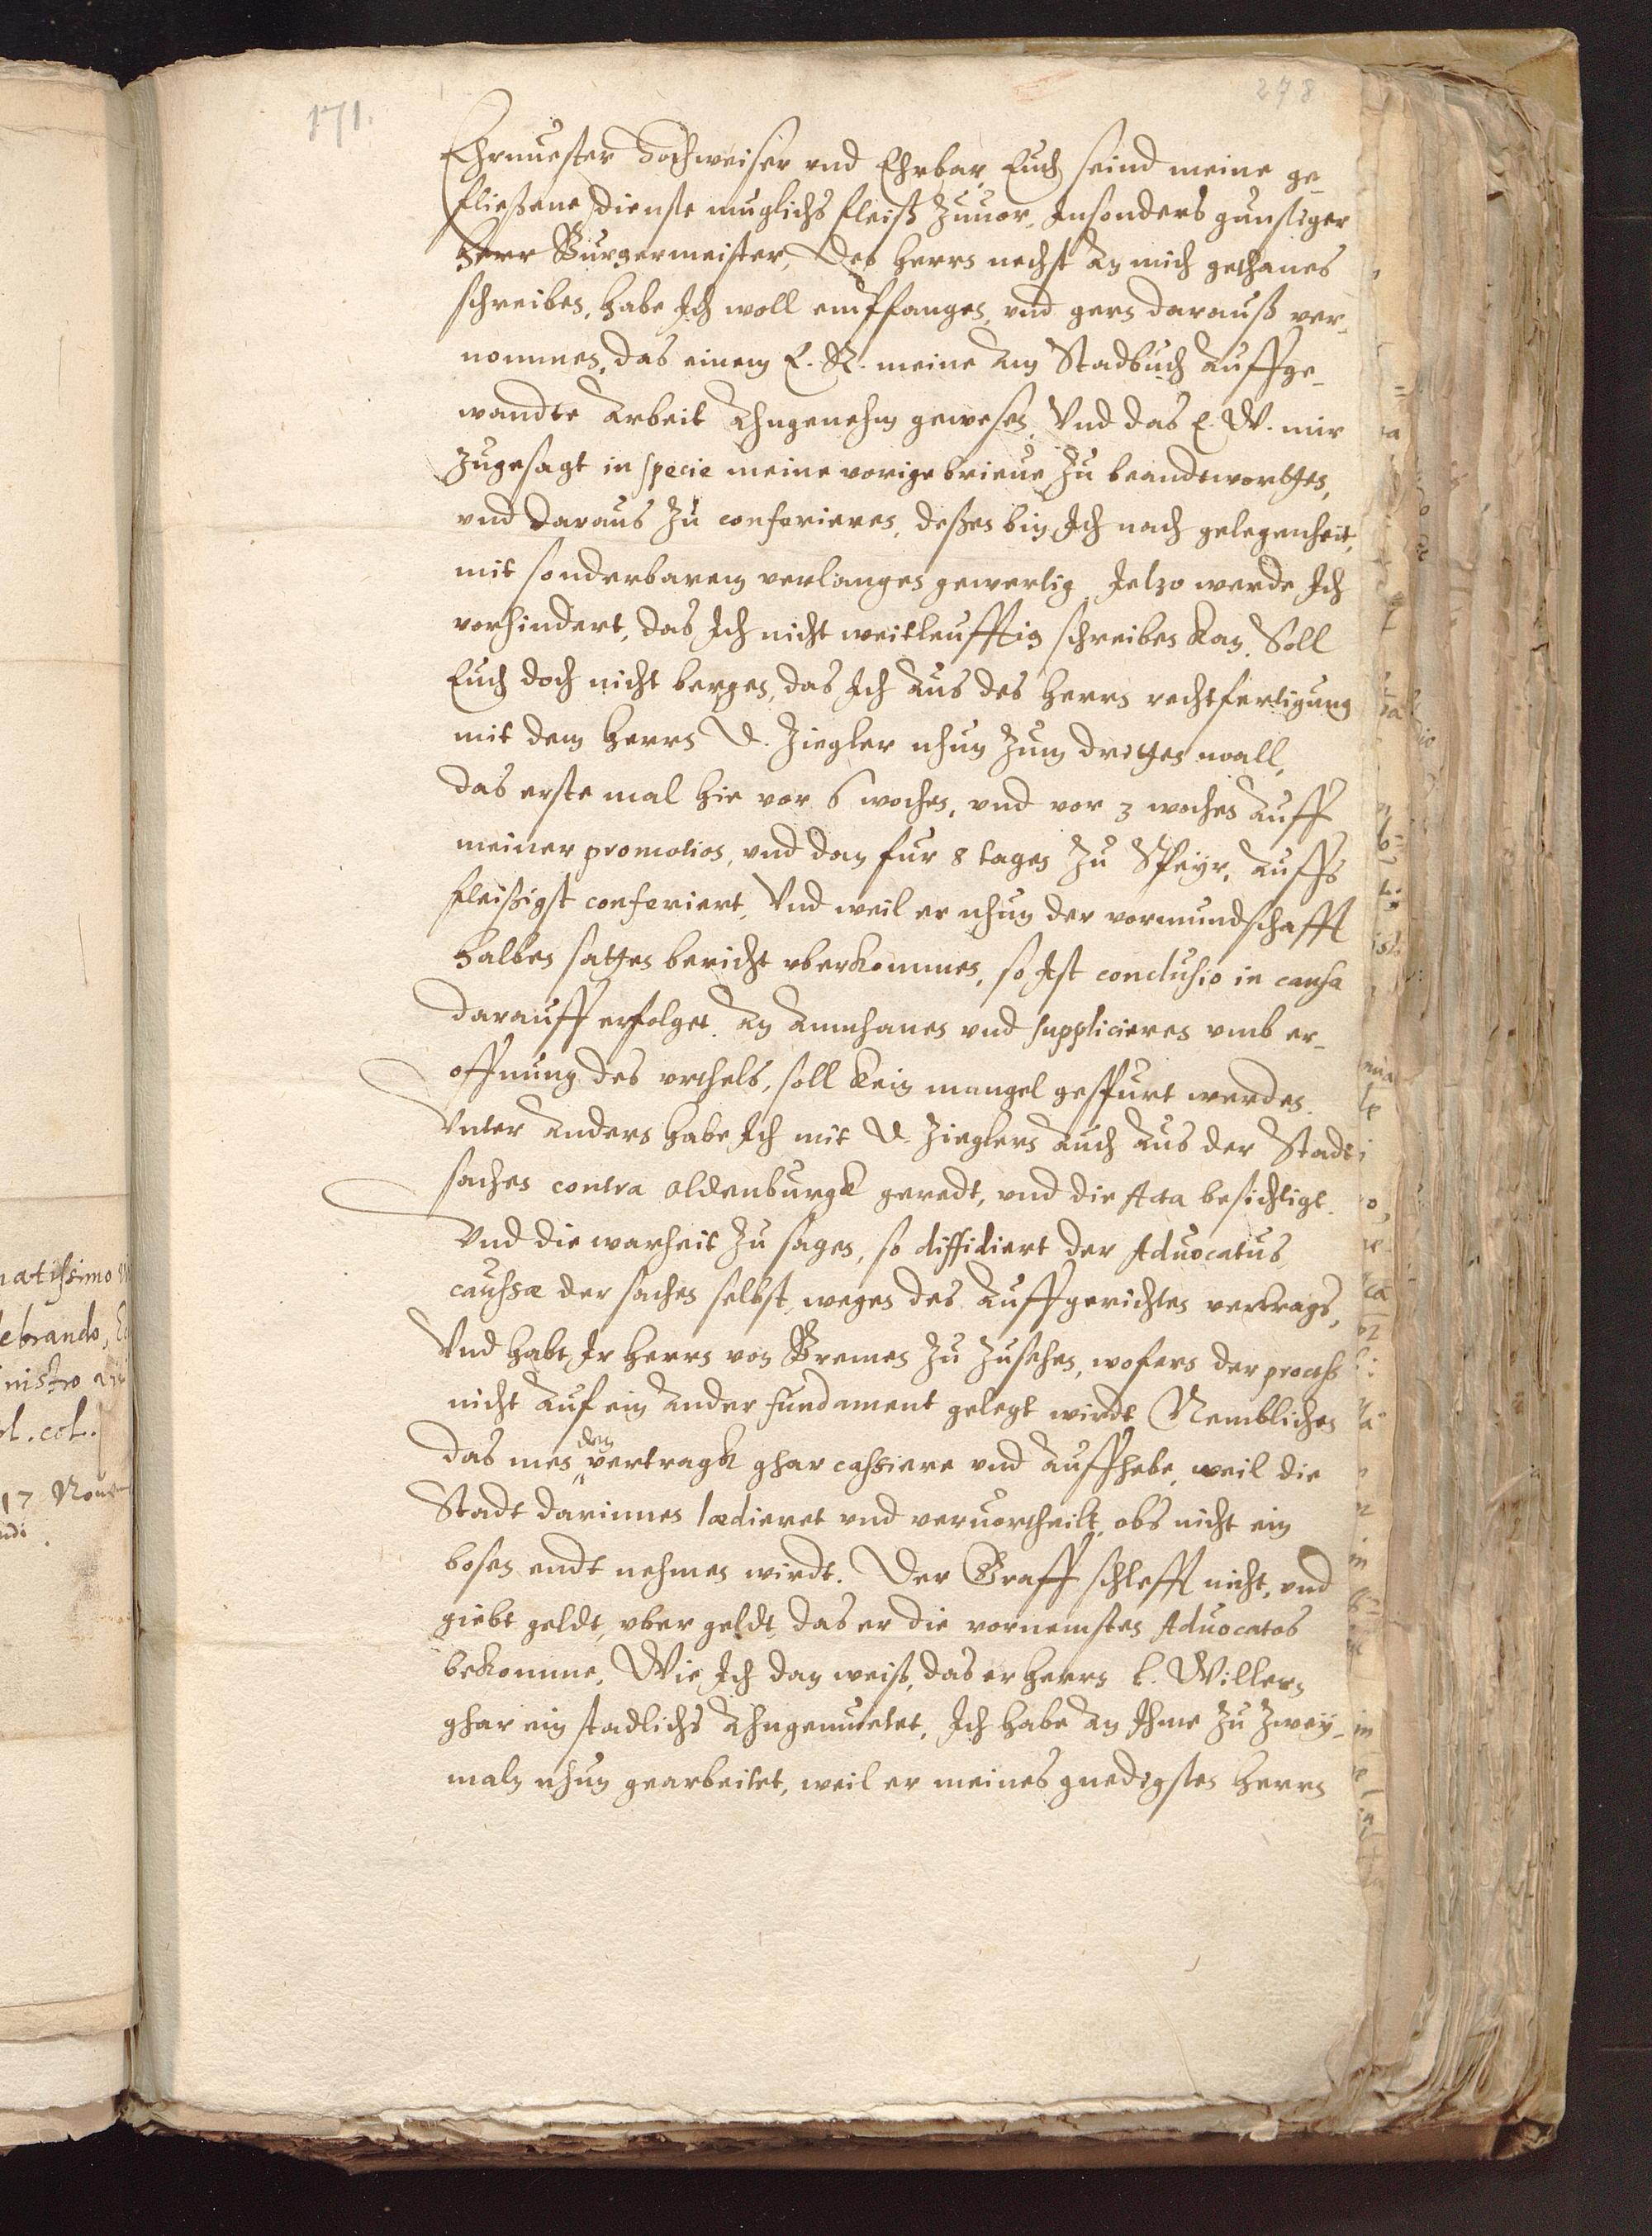 278
171.
Ehrnuester Hochweiser vnd Ehrbar, Euch seind meine ge-
fliessene dienste muglichs fleiß zuuor, Insonders gunstiger
Herr Burgermeister, Des herrn nechst an mich gethanes
schreiben, habe Ich woll emffangen, vnd gern darauß ver-
nommen, das einem E. R. meine am Stadbuch auffge-
wandte arbeit ahngenehm gewesen, Vnd das E. W. mir
zugesagt in specie meine vorige brieue zu beandtwortten,
vnd daraus zu conferieren, dessen bin Ich nach gelegenheit,
mit sonderbarem verlangen gewertig. Jetzo werde Ich
vorhindert, das Ich nicht weitleufftig schreiben kan. Soll
Euch doch nicht bergen, das Ich aus des herrn rechtfertigung
mit dem herrn D. Ziegler nhun zum dritten mall,
das erste mal hie vor 6 wochen, vnd vor 3 wochen auff
meiner promotion, vnd dan fur 8 tagen zu Speyr, auffs
fleissigst conferiert, Vnd weil er nhun der vormundschafft
halben satten bericht vberkommen, so Ist conclusio in causa
darauff erfolget. An anmhanen vnd supplicieren vmb er-
offnung des vrthels, soll kein mangel gespurt werden.
Vnter andern habe Ich mit D. Zieglern auch aus der Stadt
sachen contra Oldenburgk geredt, vnd die Acta besichtigt.
Vnd die warheit zu sagen, so diffidiert der Aduocatus
caussæ der sachen selbst, wegen des auffgerichten vertrags,
Vnd habt Ir herrn von Bremen zu zusehen, wofern der process
nicht auf ein ander fundament gelegt wirdt Nemblichen
das men den vertragk ghar cassiere vnd auffhebe, weil die
Stadt darinnen lædieret vnd veruortheilt, obs nicht ein
bosen endt nehmen wirdt. Der Graff schlefft nicht, vnd
giebt geldt, vber geldt, das er die vornemsten Aduocatos
bekomme, Wie Ich dan weiß, das er herrn L. Willern
ghar ein stadlichs ahngemutet, Ich habe an Ihme zu zwey-
maln nhun gearbeitet, weil er meines gnedigsten herrn